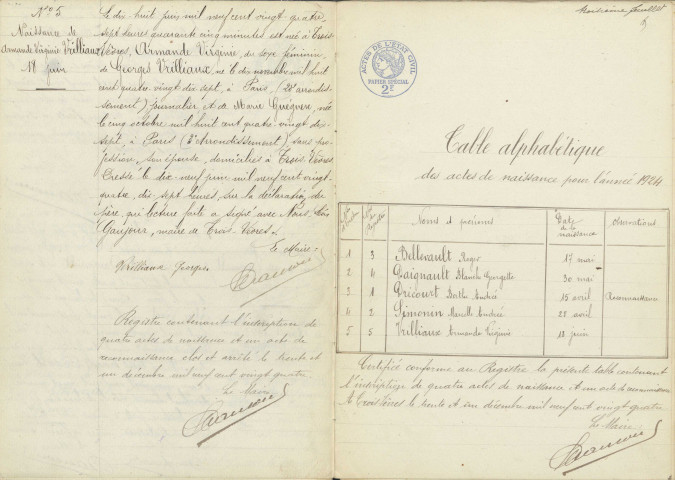 N° 5
Naissance de
Armande Virginie Vrilliaux
18 juin
Le dix huit juin mil neuf cent vingt quatre
sept heures quarante cinq minutes est née à Trois
Vèvres, Armande Virginie, du sexe féminin
de Georges Vrilliaux, né le dix novembre mil huit
cent quatre vingt dix sept, à Paris, arrondis-
sement) journalier et de Marie née
le cinq octobre mil huit cent quatre vingt dix
sept, à Paris Arrondissement) sans pro-
fession, son épouse, domiciliés à Trois Vèvres
Dressé le dix neuf juin mil neuf cent vingt
quatre, dix sept heures, sur la déclaration du
père, qui lecture faite a signé avec Nous,
maire de Trois Vèvres.
Le Maire
Vrilliaux Georges
Registre contenant l'inscription de
quatre actes de naissance et un acte de
reconnaissance clos et arrêté le trente et
un décembre mil neuf cent vingt quatre
Le Maire
feuillet
ACTES DE L'ETAT CIVIL
PAPIER SPECIAL
2F
Table alphabétique
des actes de naissance pour l'année 1924
Noms et prénoms Date de la naissance Observations
1 3 Bellevault Roger 17 mai
2 4 Gaignault Blanche Georgette 30 mai
3 1 Gricourt Berthe Andrée 15 avril Reconnaissance
4 2 Simonin Marcelle Andrée 28 avril
5 5 Vrilliaux Armande Virginie 18 juin
Certifiée conforme au Registre la présente table contenant
l'inscription de quatre actes de naissance et un acte de reconnaissance
A Trois Vèvres le trente et un décembre mil neuf cent vingt quatre
Le Maire